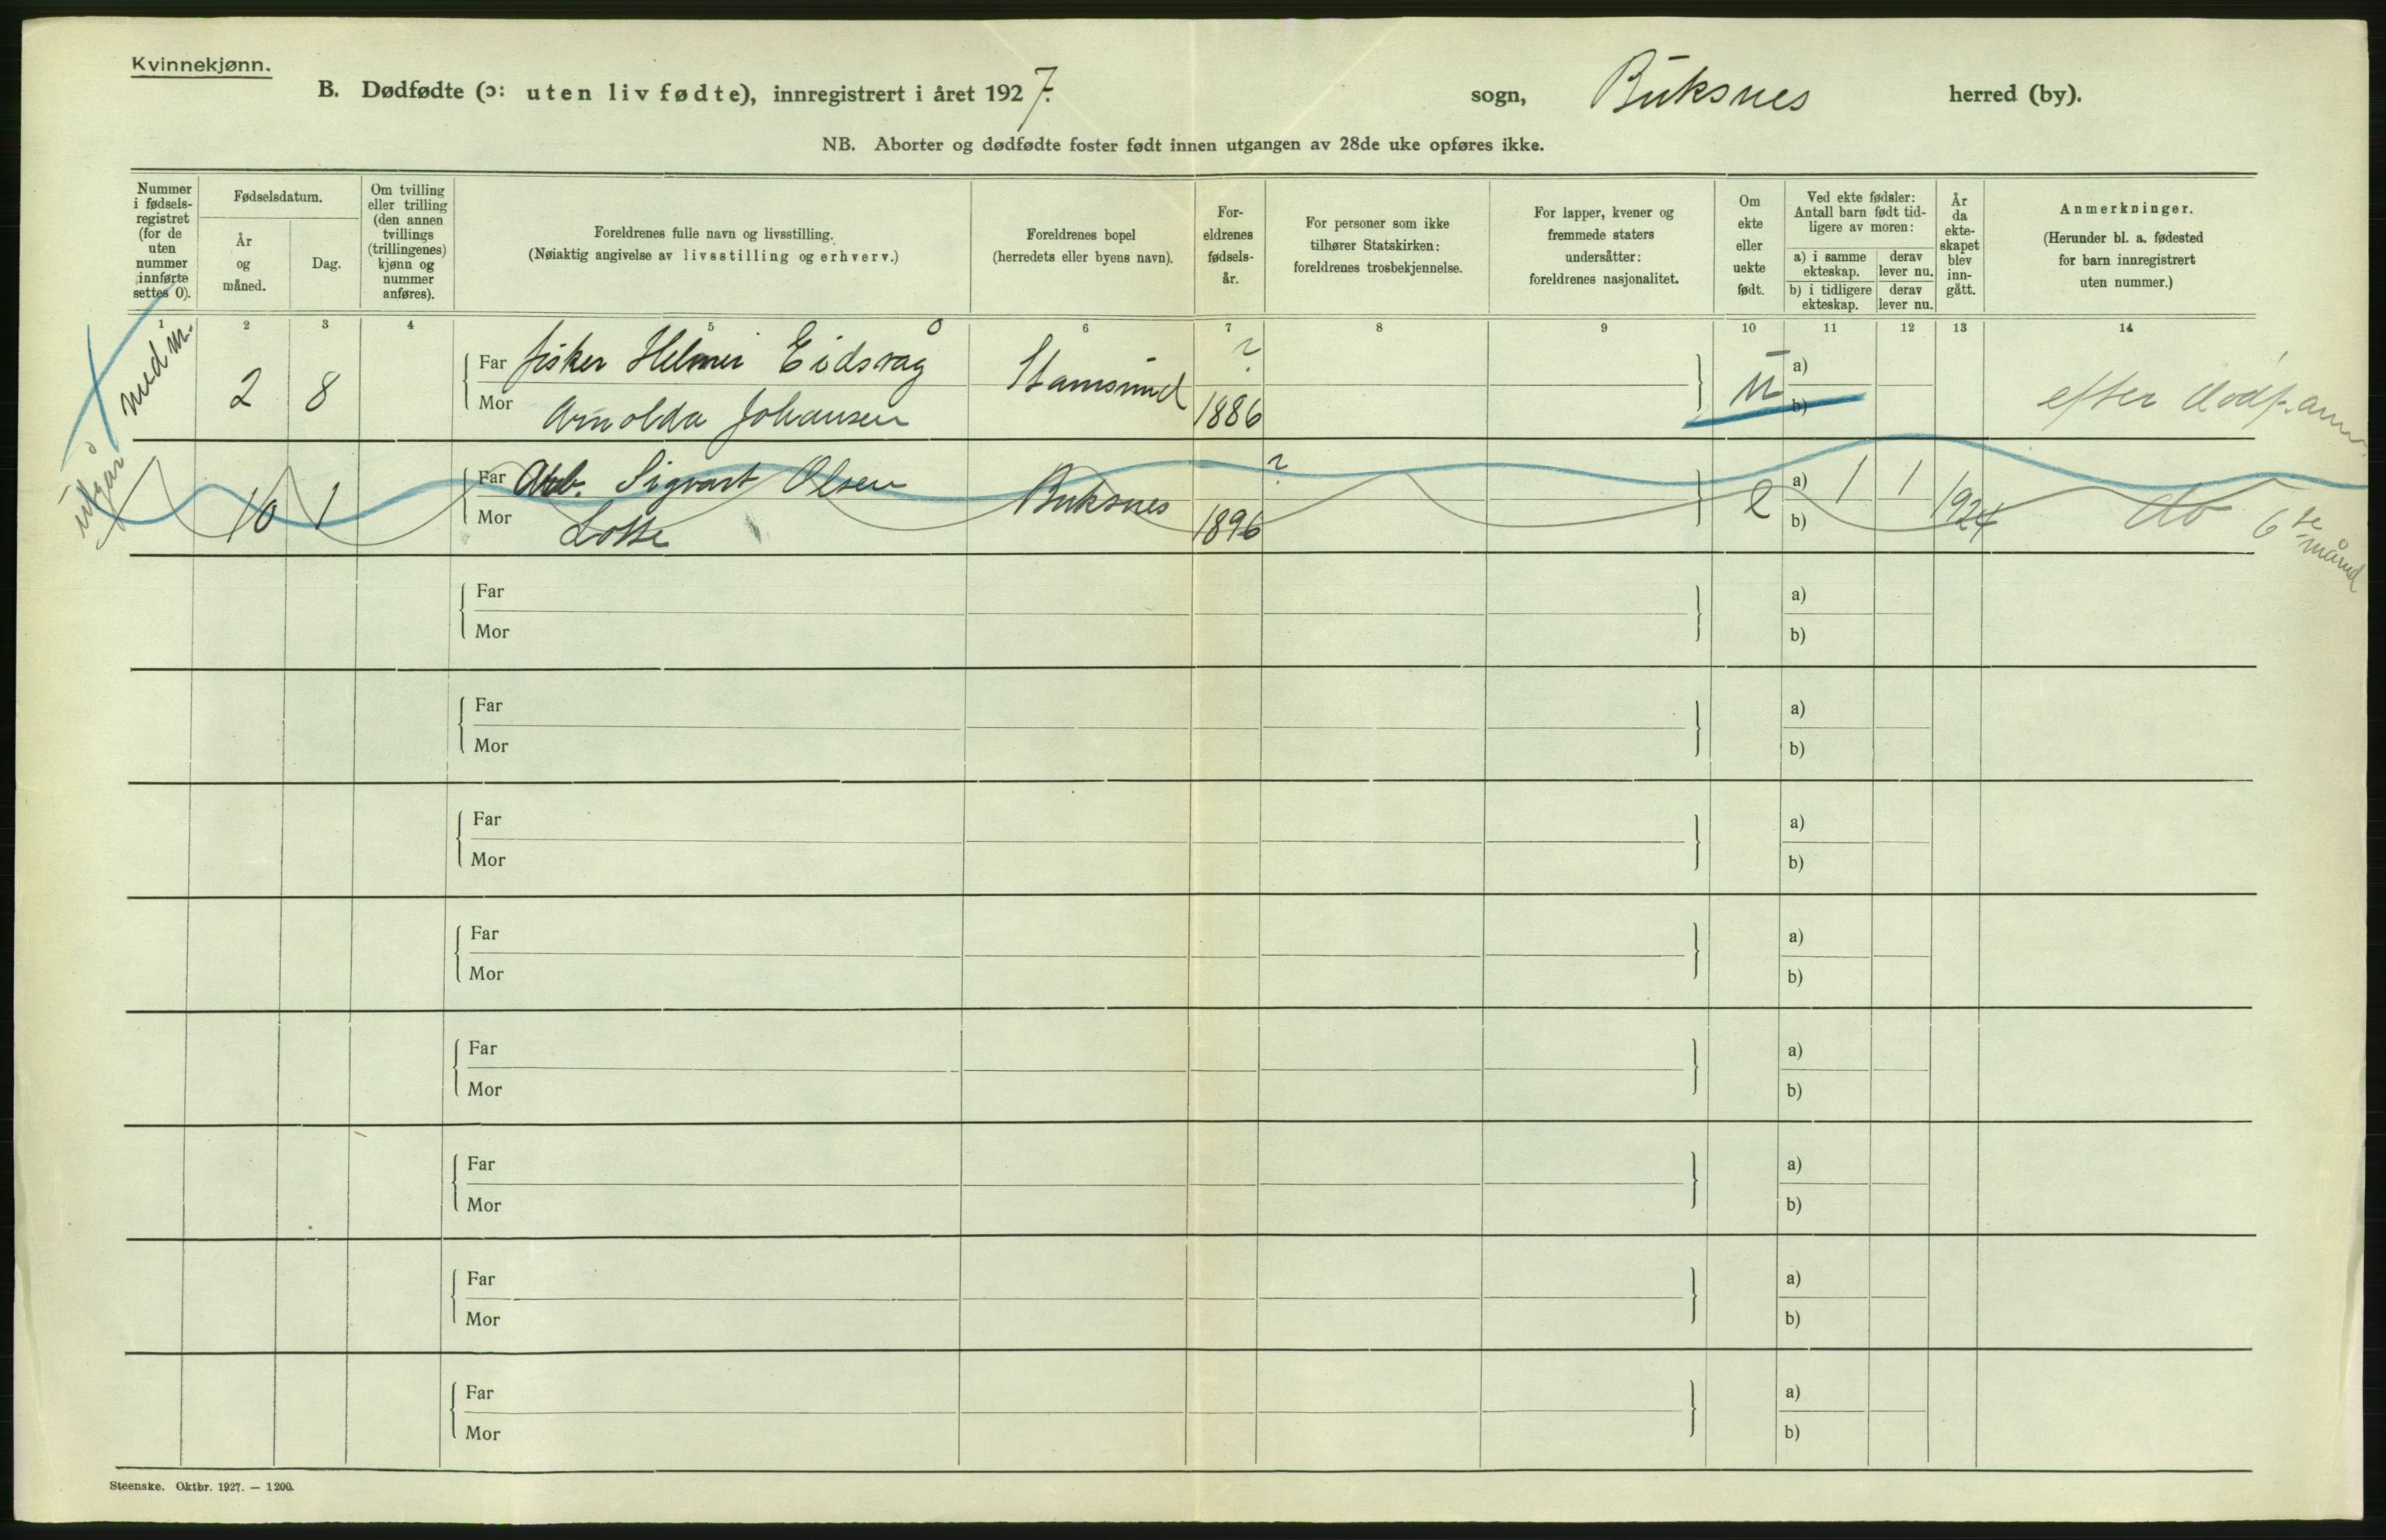 Kvinnekjønn.
B. Dødfødte (ɔ: uten liv fødte), innregistrert i året 1927. sogn, Buksnes herred (by).
NB. Aborter og dødfødte foster født innen utgangen av 28de uke opføres ikke.
Nummer i fødsels-registret (for de uten nummer innførte settes 0).
Fødselsdatum.
År og måned.
Dag.
Om tvilling eller trilling (den annen tvillings (trillingenes) kjønn og nummer anføres).
Foreldrenes fulle navn og livsstilling.
(Nøiaktig angivelse av livsstilling og erhverv.)
Foreldrenes bopel
(herredets eller byens navn).
For-eldrenes fødsels-år.
For personer som ikke tilhører Statskirken: foreldrenes trosbekjennelse.
For lapper, kvener og fremmede staters undersåtter: foreldrenes nasjonalitet.
Om ekte eller uekte født.
Ved ekte fødsler: Antall barn født tid-ligere av moren:
a) i samme ekteskap.
derav lever nu.
b) i tidligere ekteskap.
derav lever nu.
År da ekte-skapet blev inn-gått.
Anmerkninger.
(Herunder bl. a. fødested for barn innregistrert uten nummer.)
1 2 3 4 5 6 7 8 9 10 11 12 13 14
med m.
2 8 Far fisker Helmer Eidsvåg Stamsund ? u a)
Mor Arnolda Johansen 1886 b) efter dødf. anm.
utgår
10 1 Far Arb. Sigvart Olsen Buksnes ? e a) 1 1 1924 do 6te månd
Mor Lotte 1896 b)
Far a)
Mor b)
Far a)
Mor b)
Far a)
Mor b)
Far a)
Mor b)
Far a)
Mor b)
Far a)
Mor b)
Far a)
Mor b)
Far a)
Mor b)
Steenske. Oktbr. 1927. — 1200.